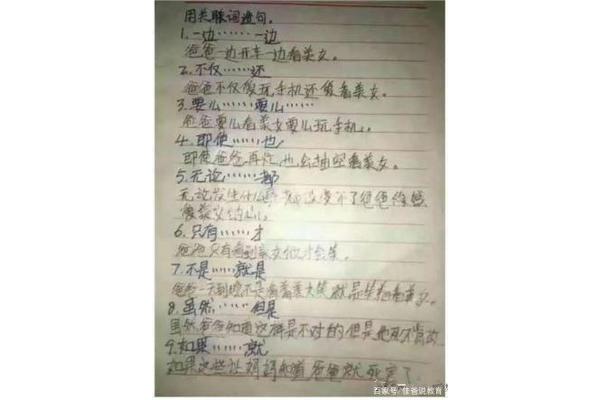 用关联词造句。
1.一边……一边
爸爸一边开车一边看美女。
2.不仅……还
爸爸不仅很玩手机还很看美女。
3.要么……要么……
爸爸要么看美女要么玩手机。
4.即使……也
即使爸爸再忙,也会抽空看美女。
5.无论……都
无论发生什么 都改变不了爸爸
美女
6.只有……才
爸爸只有看到美女他才会笑。
7.不是……就是
爸爸一天到晚不是看着美女笑就是 看美女。
8.虽然……但是
虽然爸爸知道这样是不对的但是他
9.如果……就
如果这些让妈妈知道爸爸就死定了
百家号/佳爸说教育